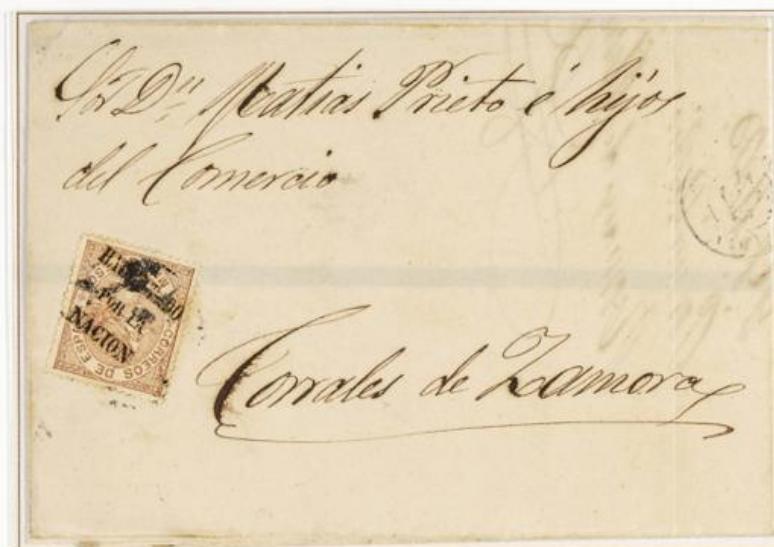 Sor Dn Matias Prieto é hijos
del Comercio
POR LA
NACION
CORREOS DE ESP
Corrales de Zamora